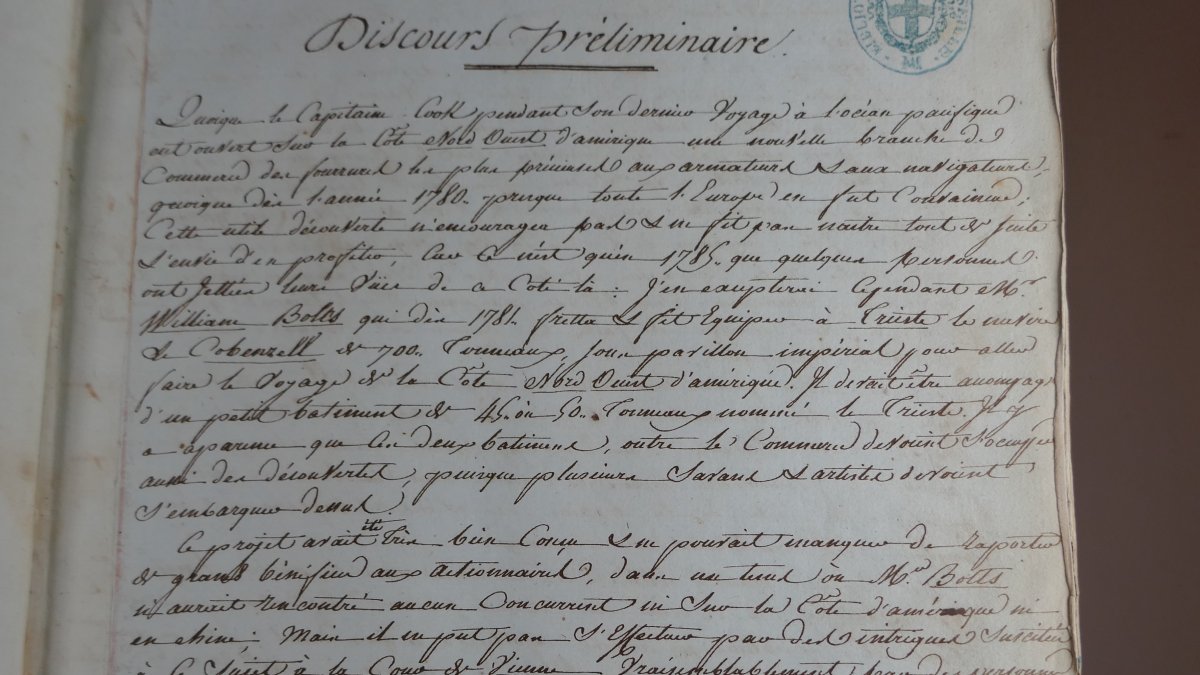 Discours Préliminaire.
Quoique le Capitaine Cook pendant son dernier Voyage à l'océan pacifique
ont ouvert sur la Côte Nord Ouest d'amérique une nouvelle branche de
Commerce des fourrures les plus précieuses aux armateurs & aux navigateurs,
quoique dès l'année 1780. presque toute l'Europe en fut Convaincue;
Cette utile découverte n'encouragea pas & ne fit pas naitre tout de suite
l'envie d'en profiter, Car ce n'est qu'en 1785. que quelques Personnes
ont Jettées leurs Vües de ce Coté là: J'en excepterai Cependant Mr.
William Bolts qui dès 1781. fretta & fit Equiper à Trieste le navire
Le Cobenzell de 700. Tonneaux, sous pavillon impérial pour aller
faire le Voyage de la Côte Nord Ouest d'amérique. Il devait être accompagné
d'un petit batiment de 45. ou 50. Tonneaux nommé le Trieste. Il y
a aparence que ces deux batimens, outre le Commerce devoient s'occuper
aussi des découvertes, puisque plusieurs Savans & artistes devoient
s'embarquer dessus.
Ce projet avait été très bien Conçu & ne pouvait manquer de raporter
de grans bénéfices aux actionnaires, dans un tems où Mr. Bolts
n'auroit rencontré aucun Concurrent ni sur la Côte d'amérique ni
en chine; Mais il ne put pas s'Effectuer par des intrigues suscitées
à ce Sujet à la Cour de Vienne Vraisemblablement par des personnes